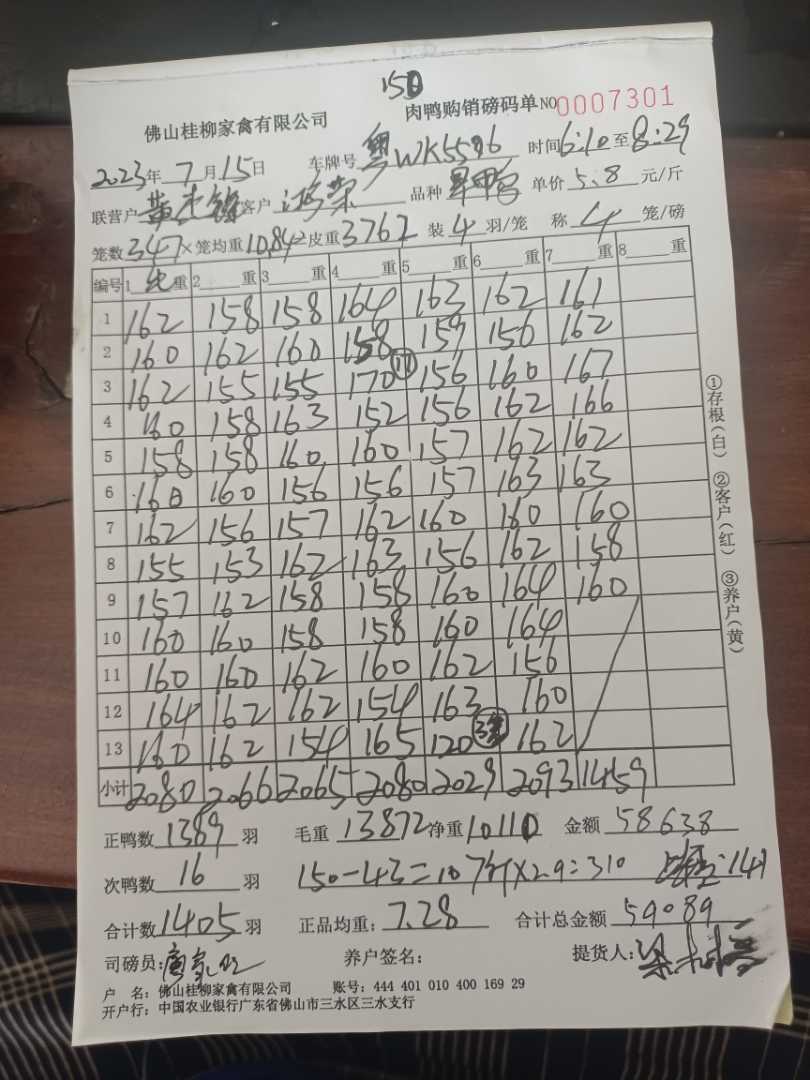 150
佛山桂柳家禽有限公司 肉鸭购销磅码单 NO 0007301
2023年 7 月 15 日 车牌号 粤WK5596 时间 6:10 至 8:29
联营户 黄 客户 鸿荣 品种 单价 5.8 元/斤
笼数 347 × 笼均重 10.842 皮重 3762 装 4 羽/笼 称 4 笼/磅
编号 1 重 2 重 3 重 4 重 5 重 6 重 7 重 8 重
1 162 158 158 164 163 162 161
2 160 162 160 158 159 156 162
3 162 155 155 170 (11) 156 160 167
4 160 158 163 152 156 162 166
5 158 158 160 160 157 162 162
6 160 160 156 156 157 163 163
7 162 156 157 162 160 160 160
8 155 153 162 163 156 162 158
9 157 162 158 158 160 164 160
10 160 160 158 158 160 164
11 160 160 162 160 162 156
12 164 162 162 154 163 160
13 160 162 154 165 120 (3笼) 162
小计 2080 2066 2065 2080 2029 2093 1459
正鸭数 1389 羽 毛重 13872 净重 10110 金额 58638
次鸭数 16 羽 150-43=107斤×2.9=310 :141
合计数 1405 羽 正品均重: 7.28 合计总金额 59089
司磅员: 养户签名: 提货人:
户 名: 佛山桂柳家禽有限公司 账号: 444 401 010 400 169 29
开户行: 中国农业银行广东省佛山市三水区三水支行
①存根(白) ②客户(红) ③养户(黄)